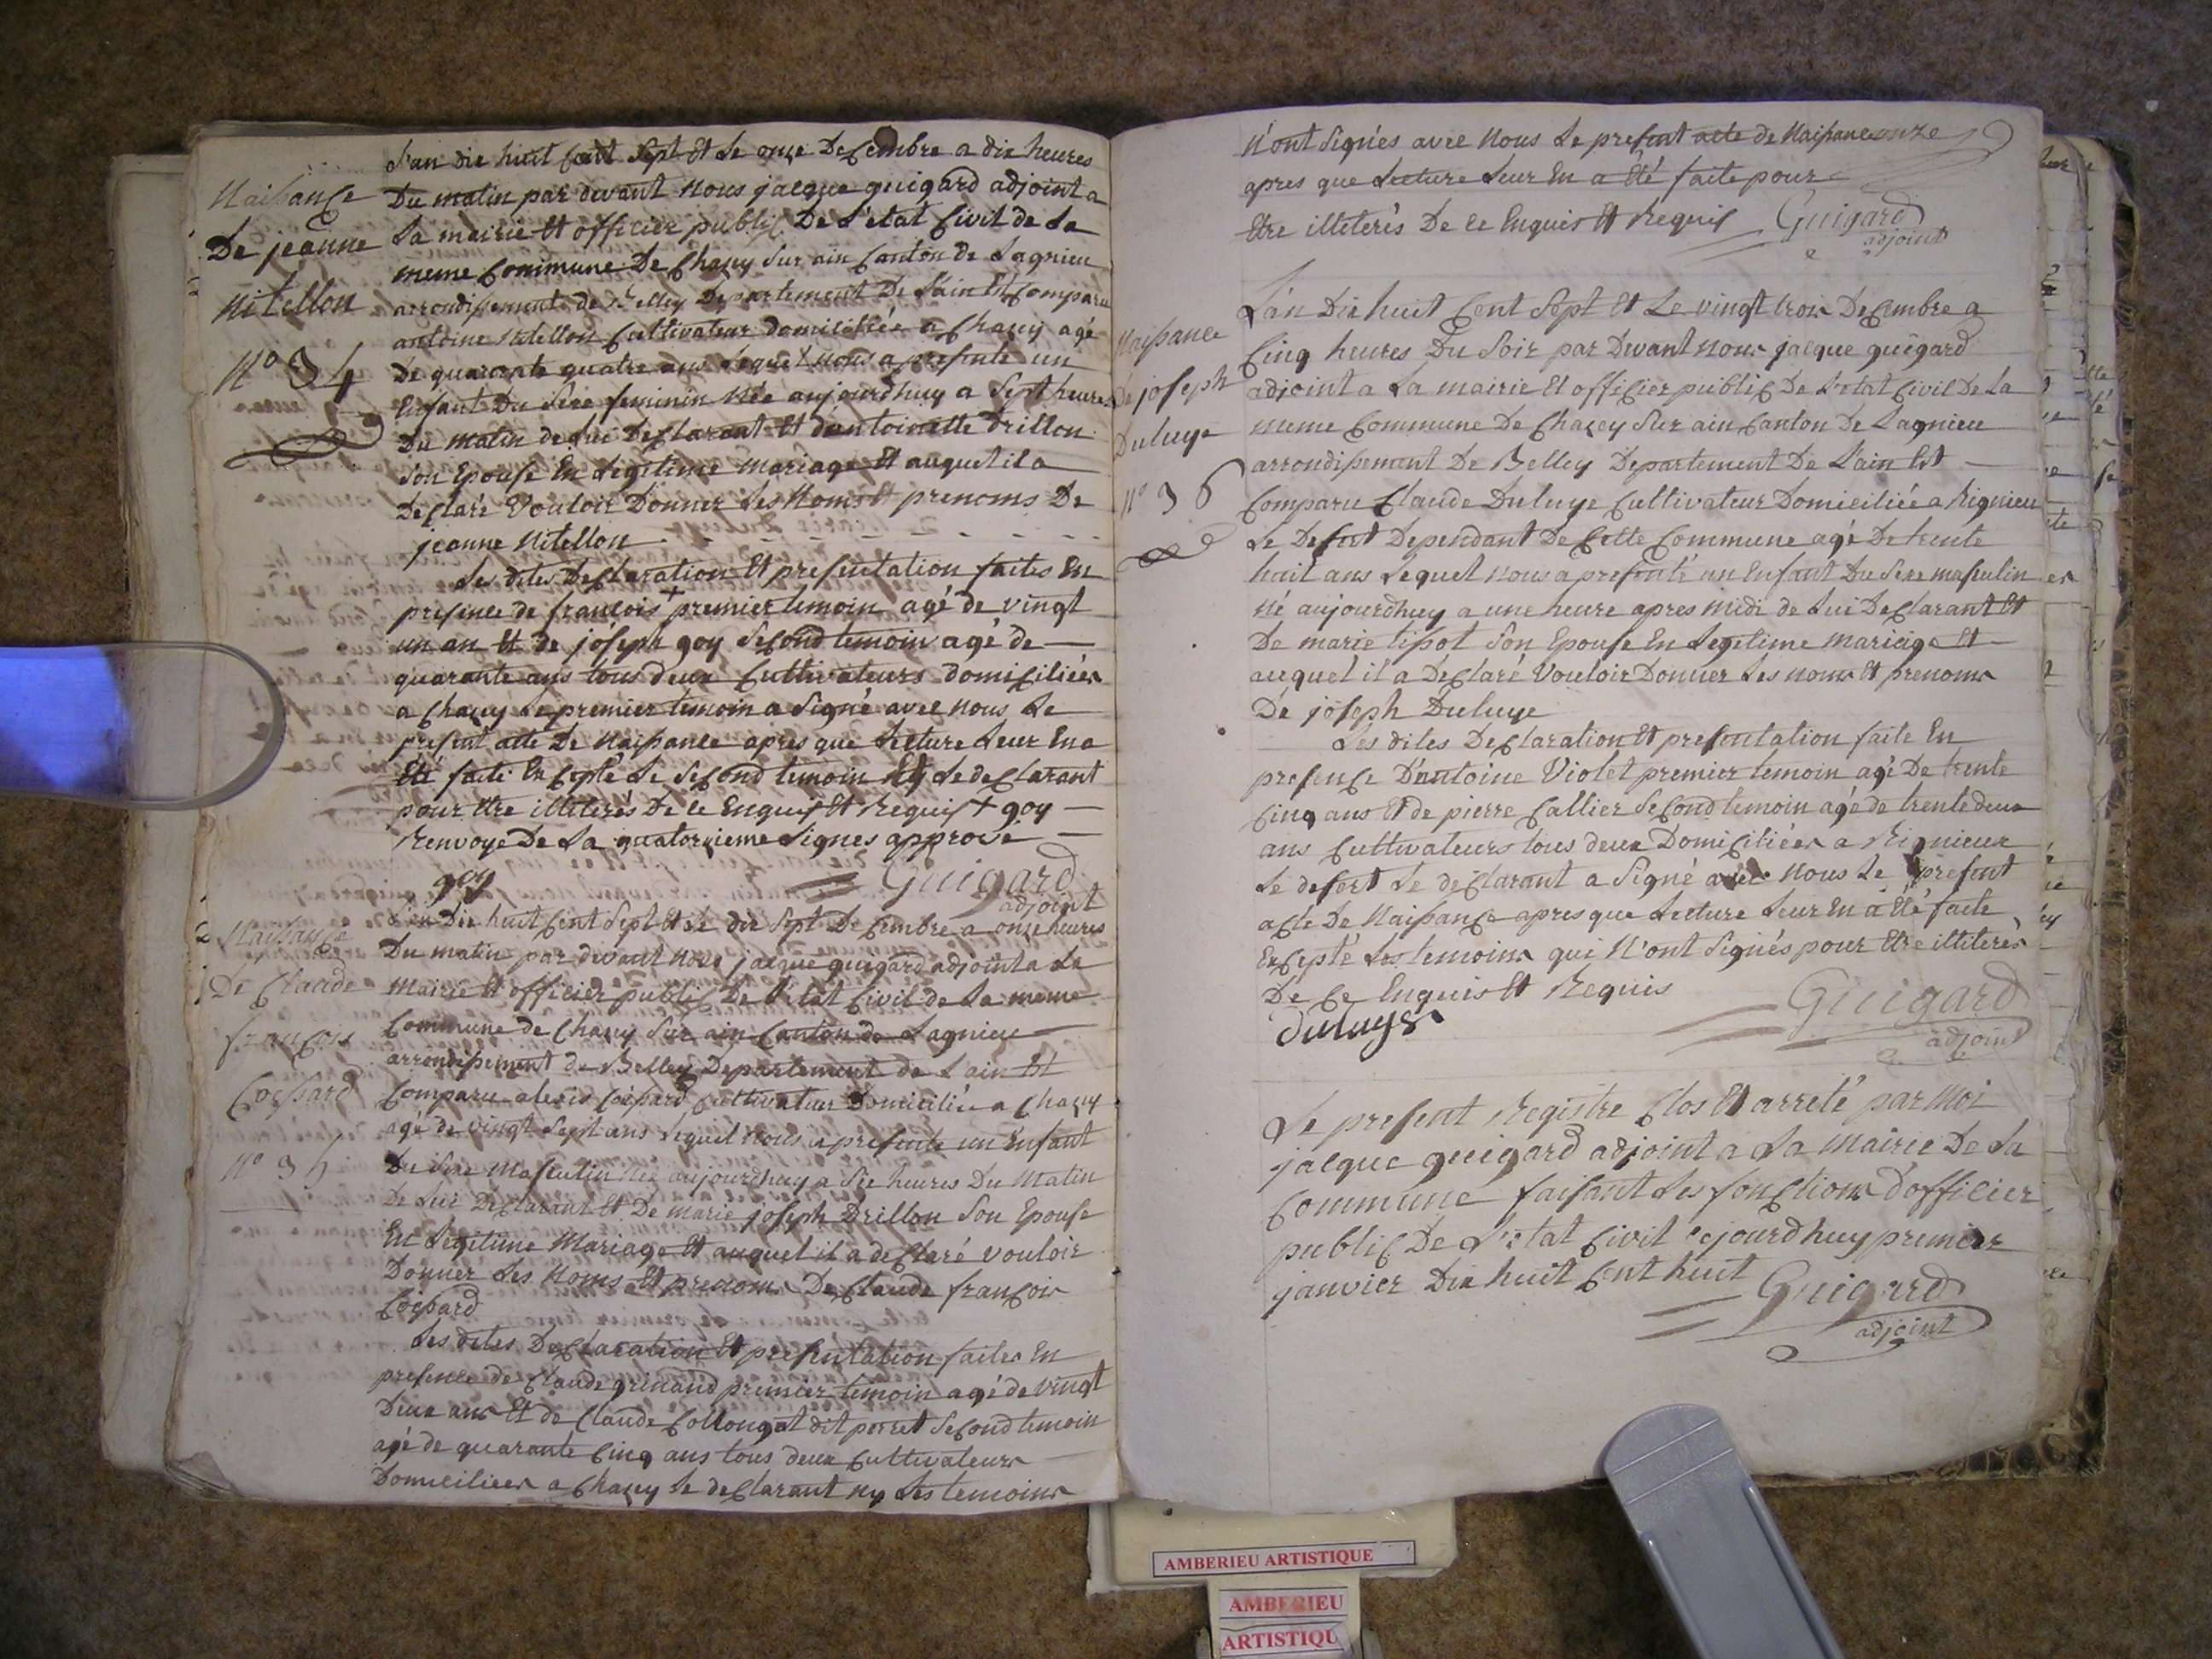 Naissance
De jeanne
Nitellon
N° 34
L'an dix huit Cent Sept Et Le onze Decembre a dix heures
Du matin par devant Nous jacque guigard adjoint a
La mairie Et officier public De L'etat Civil de La
meme Commune De Chazey Sur ain Canton de Lagnieu
arrondissement de Belley Departement De L'ain Est Comparu
antoine Nitellon Cultivateur domiciliée a Chazey agé
De quarante quatre ans Lequel Nous a presente un
Enfant Du Sexe feminin Née aujourdhuy a Sept heures
Du matin de Lui Declarant Et d'antoinette Drillon
Son Epouse En Legitime Mariage Et auquel il a
Declaré Vouloir Donner Les Noms Et prenoms De
jeanne Nitellon
Les dites Declaration Et presentation faites En
presence de francois + premier temoin agé de vingt
un an Et de joseph goy Second temoin agé de
quarante ans tous deux Cultivateurs domiciliées
a Chazey Le premier temoin a Signé avec Nous Le
present acte De Naissance apres que Lecture Leur En a
Eté faite Excepté Le Second temoin Ny Le declarant
pour Etre illiterés De ce Enquis Et Requis + goy
Renvoye De La quatorzieme Lignes apprové
goy Guigard
adjoint
Naissance
De Claude
françois
Cossard
N° 35
L'an Dix huit Cent Sept Et Le dix Sept Decembre a onze heures
Du matin par devant Nous jacque guigard adjoint a La
Mairie Et officier public De L'etat Civil de La meme
Commune de Chazey Sur ain Canton de Lagnieu
arrondissement de Belley Departement de L'ain Est
Comparu alexis Cossard Cultivateur Domiciliée a Chazey
agé de vingt Sept ans Lequel Nous a presente un Enfant
Du Sexe Masculin Née aujourdhuy a Six heures Du Matin
De Lui Declarant Et De marie joseph Drillon Son Epouse
En Legitime Mariage Et auquel il a declaré vouloir
Donner Les Noms Et prenoms De Claude françois
Cossard
Les dites Declaration Et presentation faites En
presence de Claude grinand premier temoin agé de vingt
Deux ans Et de Claude Collonge dit perret Second temoin
agé de quarante Cinq ans tous deux Cultivateurs
Domiciliées a Chazey Le declarant ny Les temoins
N'ont Signés avec Nous Le present acte de Naissance onze
apres que Lecture Leur En a Eté faite pour
Etre illiterés De ce Enquis Et Requis Guigard
adjoint
Naissance
De joseph
Duluye
N° 36
L'an Dix huit Cent Sept Et Le vingt trois Decembre a
Cinq heures Du Soir par Devant Nous jacque guigard
adjoint a La mairie Et officier public De L'etat Civil De La
meme Commune De Chazey Sur ain Canton De Lagnieu
arrondissement De Belley Departement De L'ain Est
Comparu Claude Duluye Cultivateur Domiciliée a Rignieu
Le Desert Dependant De Cette Commune agé De trente
huit ans Lequel Nous a presenté un Enfant Du Sexe masculin
Né aujourdhuy a une heure apres Midi de Lui Declarant Et
De marie tissot Son Epouse En Legitime Mariage Et
auquel il a Declaré Vouloir Donner Les noms Et prenoms
De joseph Duluye
Les dites Declaration Et presentation faite En
presence D'antoine Violet premier temoin agé De trente
Cinq ans Et de pierre Callier Second temoin agé de trente deux
ans Cultivateurs tous deux Domiciliées a Rignieux
Le desert Le declarant a Signé avec Nous Le present
acte De Naissance apres que Lecture Leur En a Eté faite
Excepté Les temoins qui N'ont Signés pour Etre illiterés
De Ce Enquis Et Requis Guigard
duluye adjoint
Le present Registre Clos Et arreté par Moi
jacque guigard adjoint a La Mairie De La
Commune faisant Les fonctions d'officier
public De L'etat Civil cejourdhuy premier
janvier Dix huit Cent huit Guigard
adjoint
AMBERIEU ARTISTIQUE
AMBERIEU
ARTISTIQU